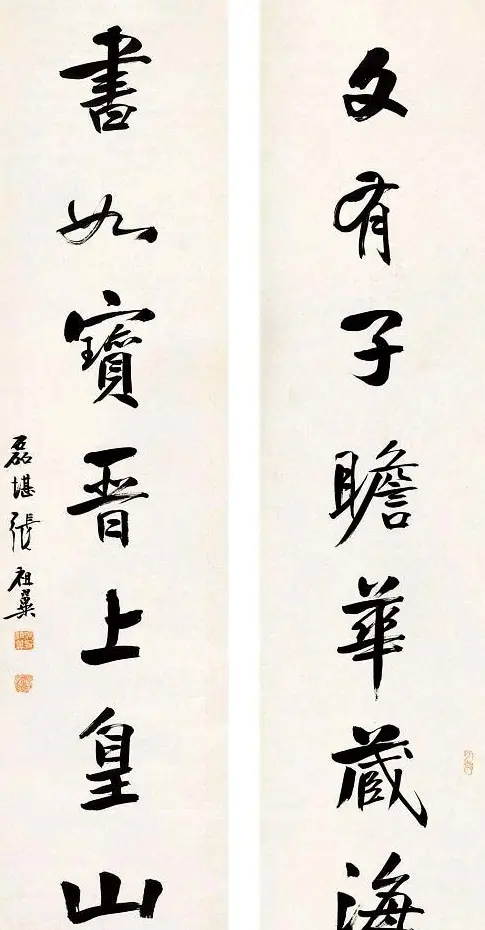 文有子瞻華藏海
書如寶晉上皇山
磊堪張祖翼